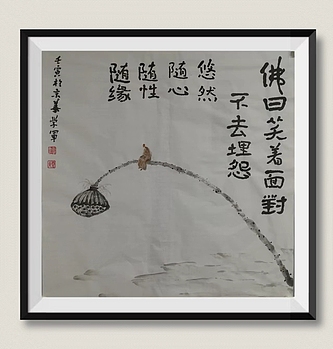 佛曰笑着面對
不去埋怨
悠然
随心
随性
随缘
壬寅於京華学軍